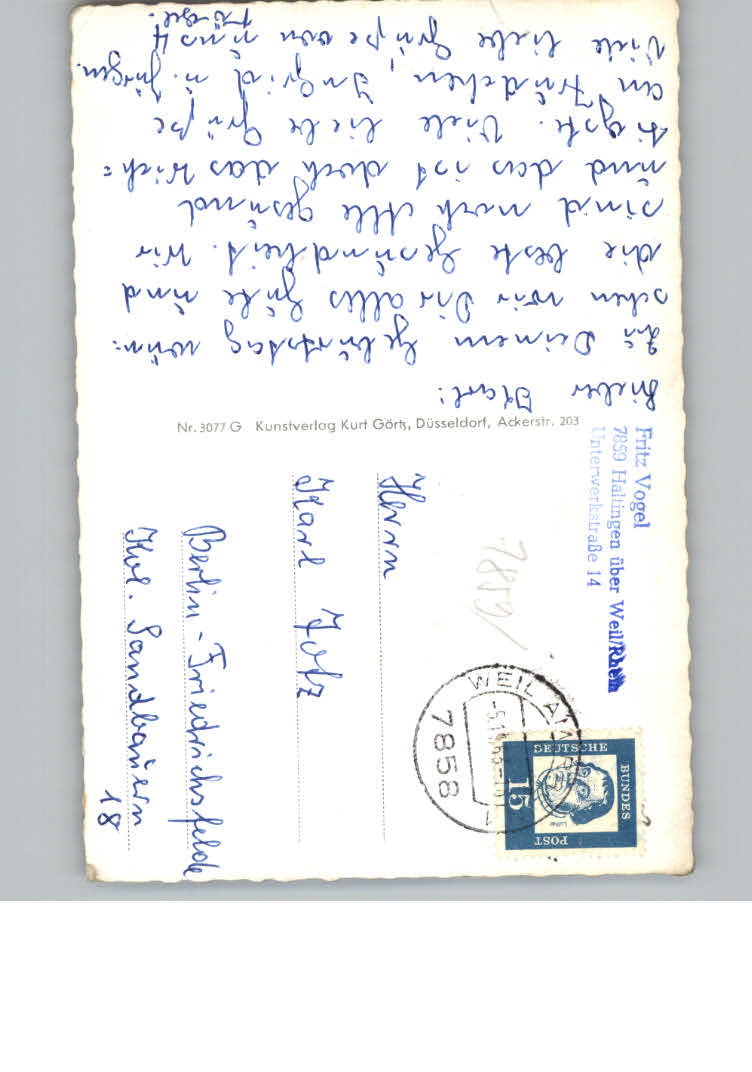 Lieber Karl!
Zu Deinem Geburtstag wün=
schen wir Dir alles Gute und
die beste Gesundheit. Wir
sind noch Alle gesund
und das ist doch das Wich=
tigste. Viele liebe Grüße
an Trudchen, Ingrid u. Jürgen.
Viele liebe Grüße von uns 4
Nr. 3077 G Kunstverlag Kurt Görts, Düsseldorf, Ackerstr. 203
Fritz Vogel
7859 Haltingen über Weil/Rhein
Unterwerkstraße 14
7859/
WEIL AM RHEIN
7858
DEUTSCHE
BUNDES
POST
15
Luther
Herrn
Karl Jotz
Berlin-Friedrichsfelde
Kol. Sandbauern
18